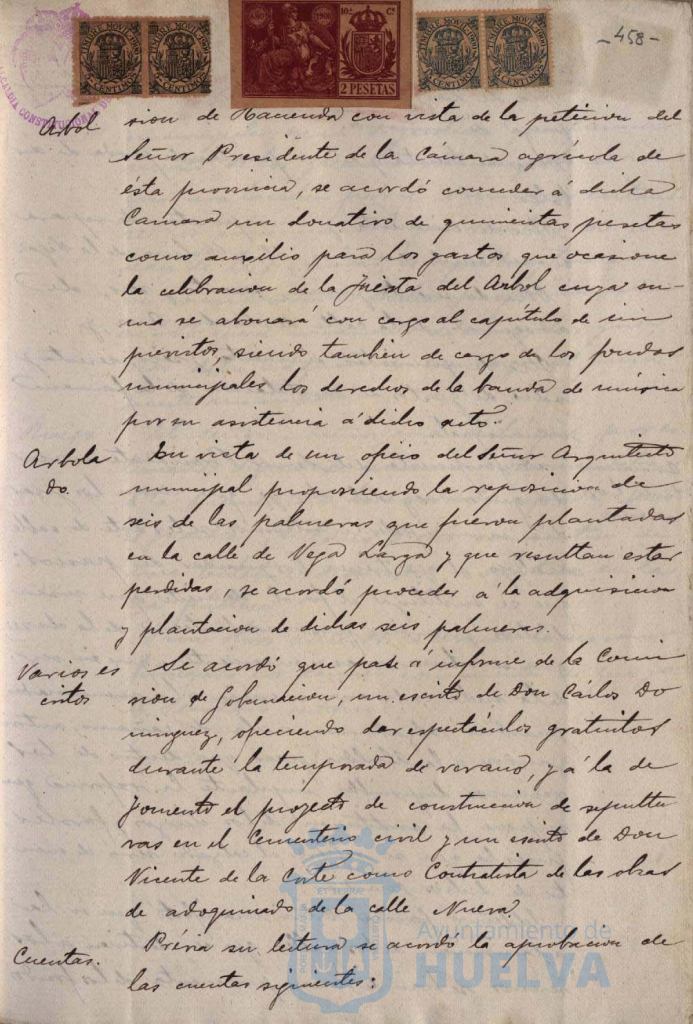 TIMBRE MOVIL 1907
TIMBRE MOVIL 1907
10.ª Cª
2 PESETAS
TIMBRE MOVIL 1907
TIMBRE MOVIL 1907
CENTIMOS
CENTIMOS
CENTIMOS
CENTIMOS
- 458 -
ALCALDIA CONSTITUCIONAL
Arbol
sion de Hacienda con vista de la peticion del
Señor Presidente de la Cámara agrícola de
ésta provincia, se acordó conceder á dicha
Camara un donativo de quinientas pesetas
como auxilio para los gastos que ocasione
la celebracion de la fiesta del Arbol cuya su-
ma se abonará con cargo al capítulo de im
previstos, siendo tambien de cargo de los fondos
municipales los derechos de la banda de música
por su asistencia á dicho acto.
Arbola
do.
En vista de un oficio del Señor Arquitecto
municipal proponiendo la reposicion de
seis de las palmeras que fueron plantadas
en la calle de Vega Larga y que resultan estar
perdidas, se acordó proceder á la adquisicion
y plantacion de dichas seis palmeras.
Varios es
critos
Se acordó que pase á informe de la Comi
sion de Gobernacion, un escrito de Don Cárlos Do
minguez, ofreciendo dar espectáculos gratuitos
durante la temporada de verano, y á la de
Fomento el proyecto de construccion de sepultu
ras en el Cementerio civil y un escrito de Don
Vicente de la Corte como Contratista de las obras
de adoquinado de la calle Nueva.
Cuentas.
Prévia su lectura se acordó la aprobacion de
las cuentas siguientes:
Ayuntamiento de
HUELVA